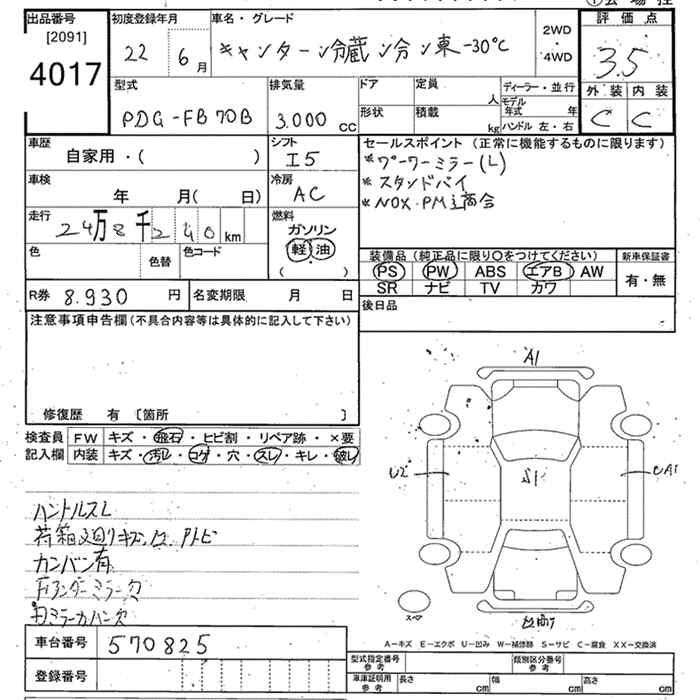 出品番号 初度登録年月 車名・グレード 2WD・4WD 評価点
[2091]
4017 22 6月 キャンター 冷蔵冷凍車 -30℃ 3.5
型式 排気量 ドア 定員 人 ディーラー・並行 外装 内装
PDG-FB70B 3.000 cc 形状 積載 kg モデル年式 年 ハンドル 左・右 C C
車歴 シフト セールスポイント (正常に機能するものに限ります)
自家用・( ) I5 *パワーミラー(L)
車検 冷房 *スタンドバイ
年 月( 日) AC *NOX・PM適合
走行 燃料
24万8千240km ガソリン
色 色替 色コード 軽油 ( )
装備品 (純正品に限り○をつけてください) 新車保証書
PS PW ABS エアB AW 有・無
SR ナビ TV カワ
R券 8.930 円 名変期限 月 日 後日品
注意事項申告欄(不具合内容等は具体的に記入して下さい)
修復歴 有 [箇所 ]
検査員 FW キズ・飛石・ヒビ割・リペア跡・×要
記入欄 内装 キズ・汚レ・コゲ・穴・スレ・キレ・破レ
A1
U2 S1 UA1
ハンドルスレ
荷箱廻りキズ、凹、アトビ
カンバン有
Fアンダーミラー欠
ミラーカバー欠
スペア
A−キズ E−エクボ U−凹み W−補修跡 S−サビ C−腐食 XX−交換済
車台番号 570825
登録番号
型式指定番号 参考 類別区分番号 参考
車庫証明用 参考 長さ cm 幅 cm 高さ cm